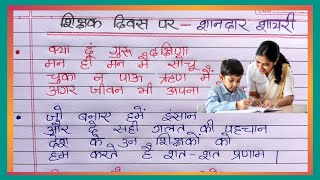 शिक्षक दिवस पर - शानदार शायरी
क्या दूं गुरू दक्षिणा
मन ही मन मैं सोंचू
चुका न पाऊं ऋण मैं
अगर जीवन भी अपना
जो बनाए हमें इंसान
और दे सही गलत की पहचान
देश के उन शिक्षकों को
हम करते हैं शत-शत प्रणाम ।